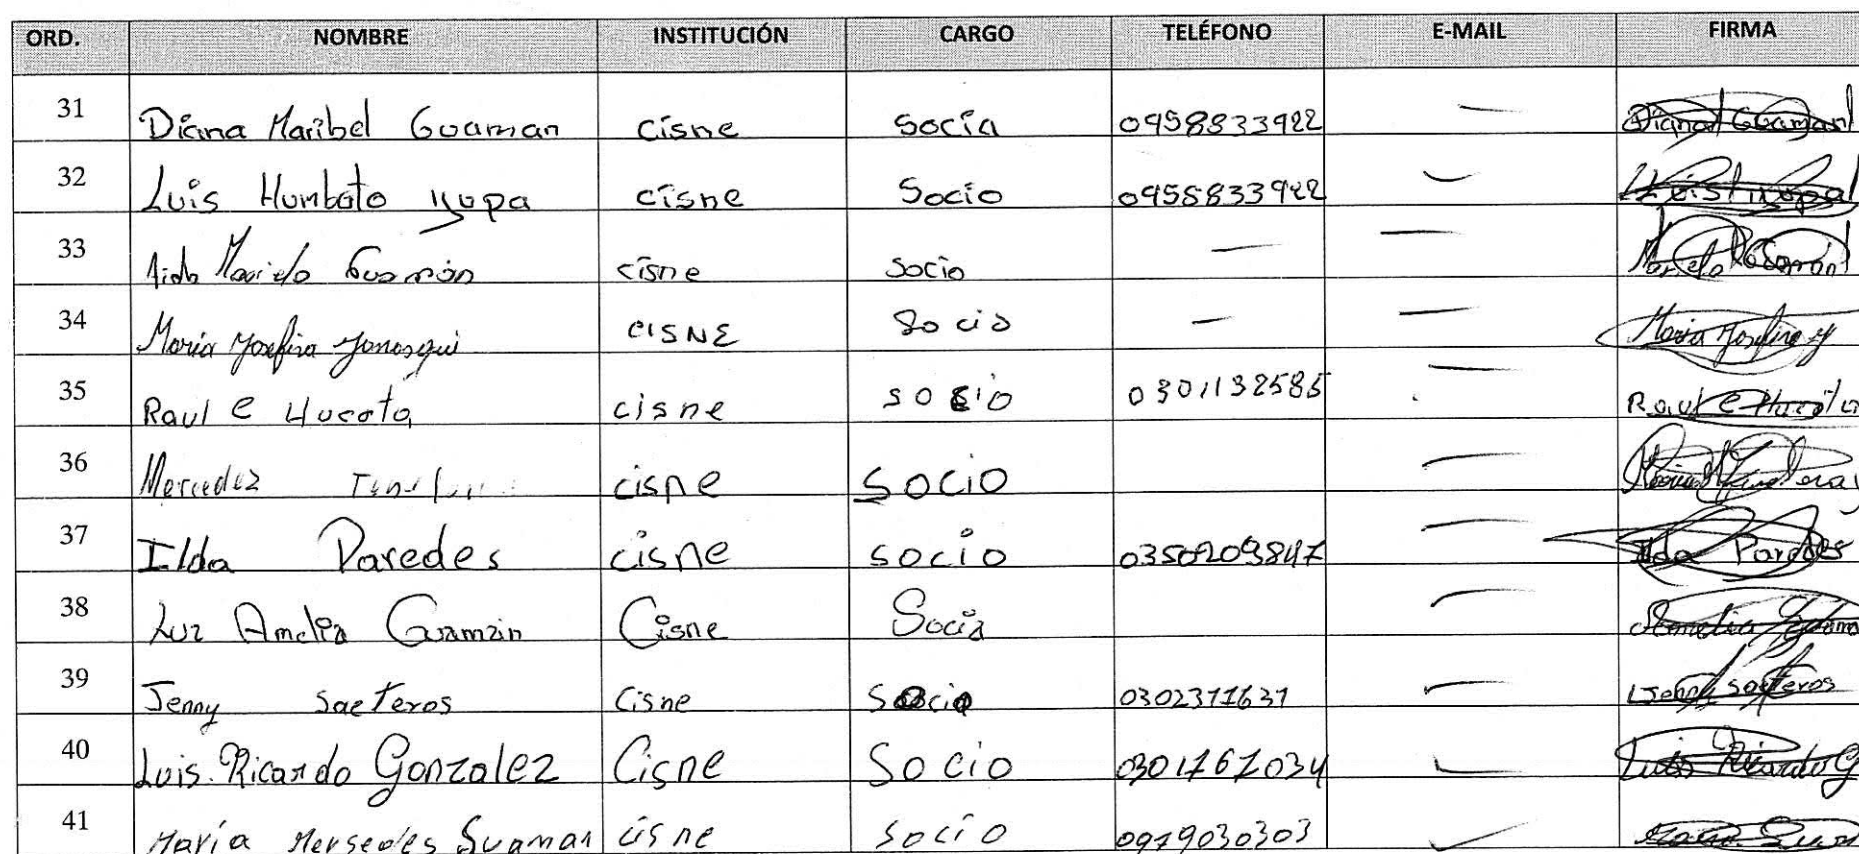 ORD. NOMBRE INSTITUCIÓN CARGO TELÉFONO E-MAIL FIRMA
31 Diana Maribel Guaman cisne socia 0958833922 — Diana Guaman
32 Luis Humbato yupa cisne Socio 0958833922 — Luis yupa
33 Aida Mariela Guamán cisne socio — — Mariela Guaman
34 Maria Josefina CISNE Socio — — Maria Josefina y
35 Raul e cisne socio 0301132585 — Raul e
36 Mercedez cisne SOCIO —
37 Ilda Paredes cisne socio 03502093847 — Ilda Paredes
38 Luz Amelia Guamán Cisne Socia — Amelia
39 Jenny saeteros Cisne socio 0302311631 — Jenny saeteros
40 Luis. Ricardo Gonzalez Cisne Socio 0301767034 — Luis Ricardo G
41 María Mersedes Guaman cisne socio 0979030303